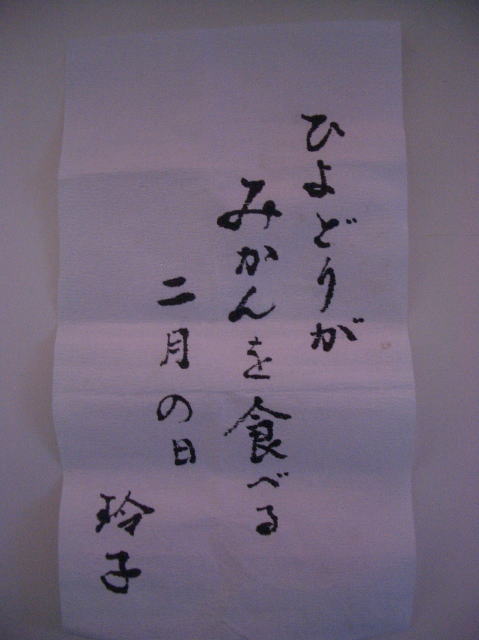 ひよどりが
みかんを食べる
二月の日
玲子